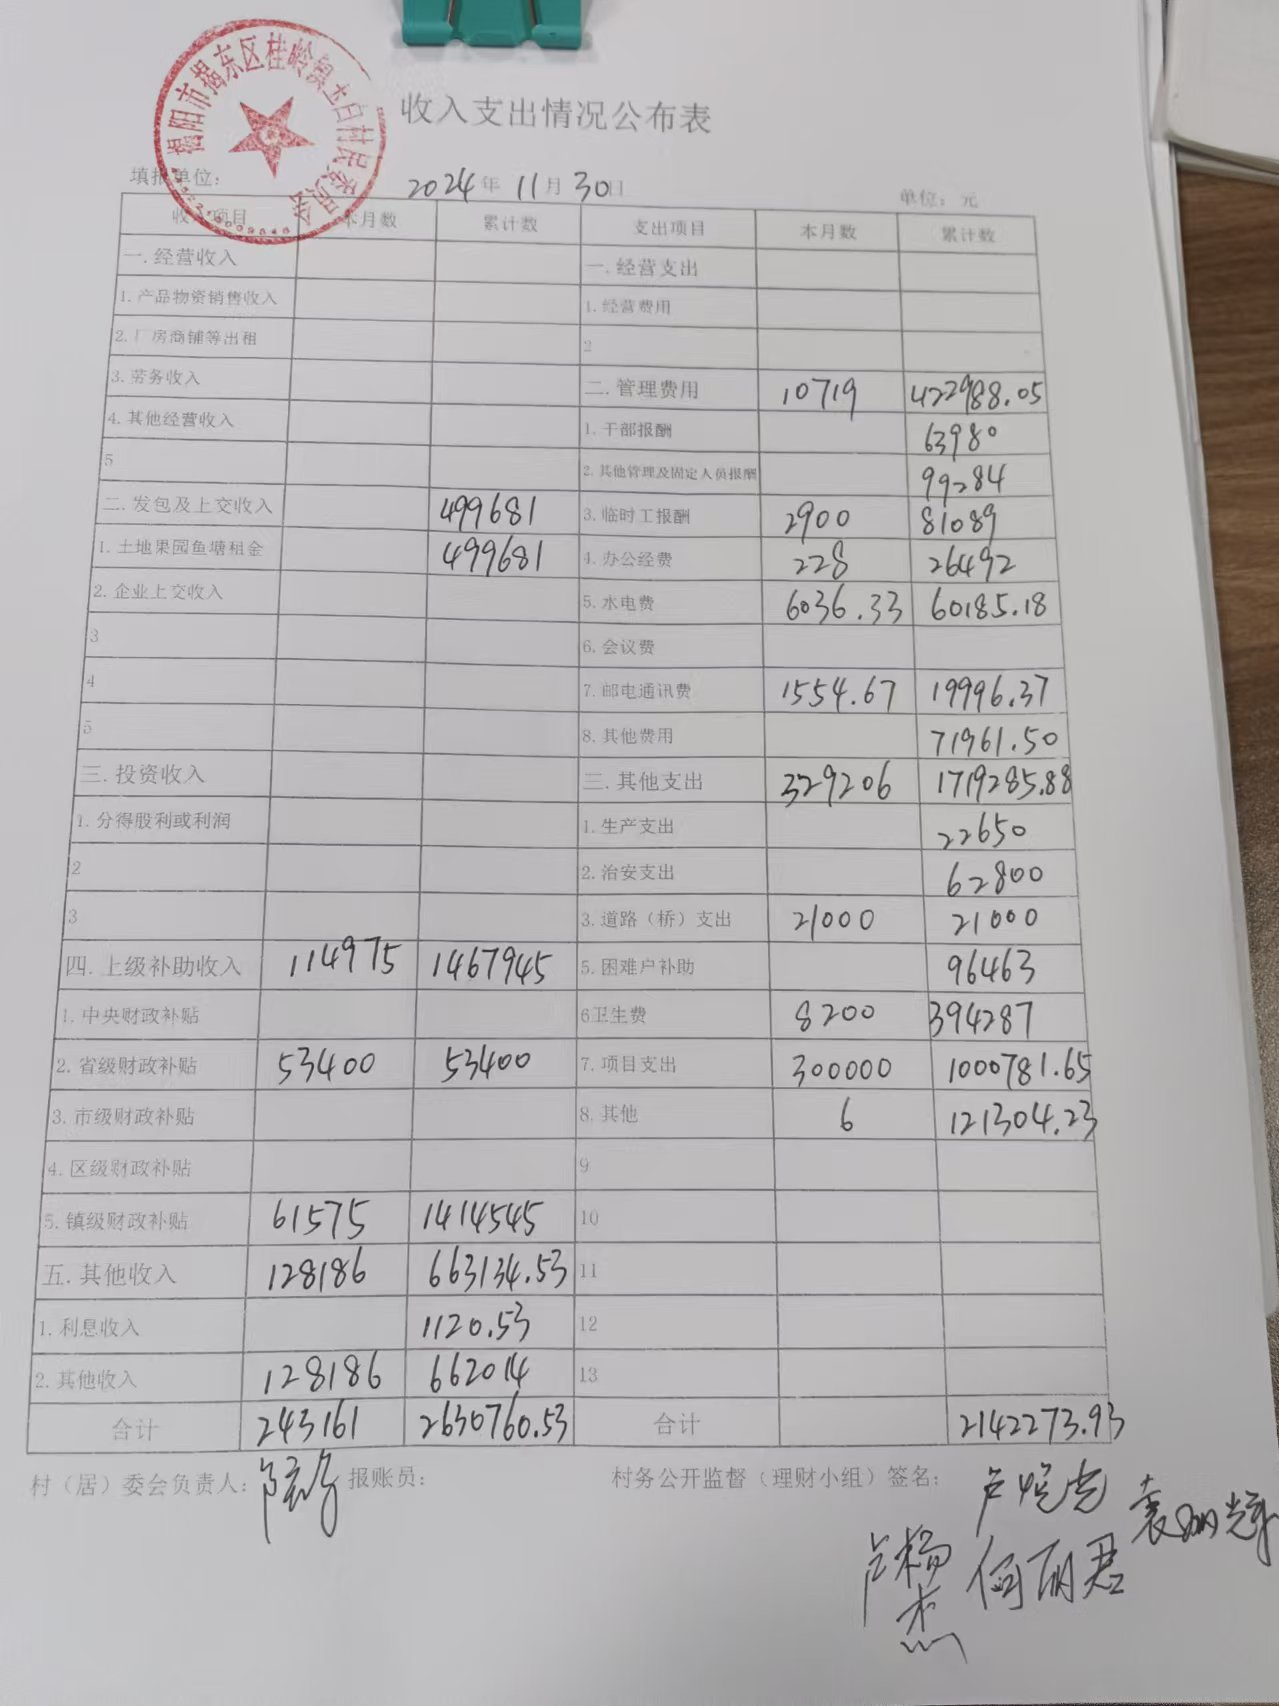 揭阳市揭东区桂岭镇玉白村民委员会
收入支出情况公布表
填报单位: 2024年11月30日 单位: 元
收入项目 本月数 累计数 支出项目 本月数 累计数
一.经营收入 一.经营支出
1.产品物资销售收入 1.经营费用
2.厂房商铺等出租 2
3.劳务收入 二.管理费用 10719 422988.05
4.其他经营收入 1.干部报酬 63980
5 2.其他管理及固定人员报酬 99284
二.发包及上交收入 499681 3.临时工报酬 2900 81089
1.土地果园鱼塘租金 499681 4.办公经费 228 26492
2.企业上交收入 5.水电费 6036.33 60185.18
3 6.会议费
4 7.邮电通讯费 1554.67 19996.37
5 8.其他费用 71961.50
三.投资收入 三.其他支出 329206 1719285.88
1.分得股利或利润 1.生产支出 22650
2 2.治安支出 62800
3 3.道路（桥）支出 21000 21000
四.上级补助收入 114975 1467945 5.困难户补助 96463
1.中央财政补贴 6卫生费 8200 394287
2.省级财政补贴 53400 53400 7.项目支出 300000 1000781.65
3.市级财政补贴 8.其他 6 121304.23
4.区级财政补贴 9
5.镇级财政补贴 61575 1414545 10
五.其他收入 128186 663134.53 11
1.利息收入 1120.53 12
2.其他收入 128186 662014 13
合计 243161 2630760.53 合计 2142273.93
村（居）委会负责人: 报账员: 村务公开监督（理财小组）签名:
何丽君